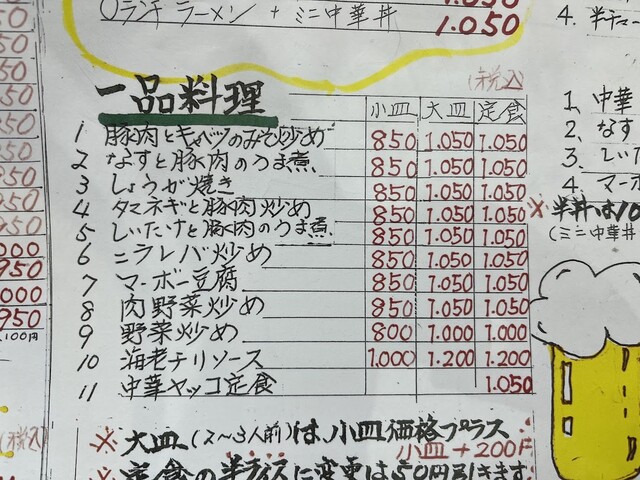 〇ランチ ラーメン + ミニ中華丼 1.050
一品料理
(税込)
小皿 大皿 定食
1 豚肉とキャベツのみそ炒め 850 1.050 1.050
2 なすと豚肉のうま煮 850 1.050 1.050
3 しょうが焼き 850 1.050 1.050
4 タマネギと豚肉炒め 850 1.050 1.050
5 しいたけと豚肉のうま煮 850 1.050 1.050
6 ニラレバ炒め 850 1.050 1.050
7 マーボー豆腐 850 1.050 1.050
8 肉野菜炒め 850 1.050 1.050
9 野菜炒め 800 1.000 1.000
10 海老チリソース 1.000 1.200 1.200
11 中華ヤッコ定食 1.050
※ 大皿(2~3人前)は小皿価格プラス
小皿+200円
※ 定食の半ライスに変更は50円引きます
4. 半チャー
1. 中華
2. なす
3. しいた
4. マーボ
※ 半丼は10
(ミニ中華丼
950
950
(税込)